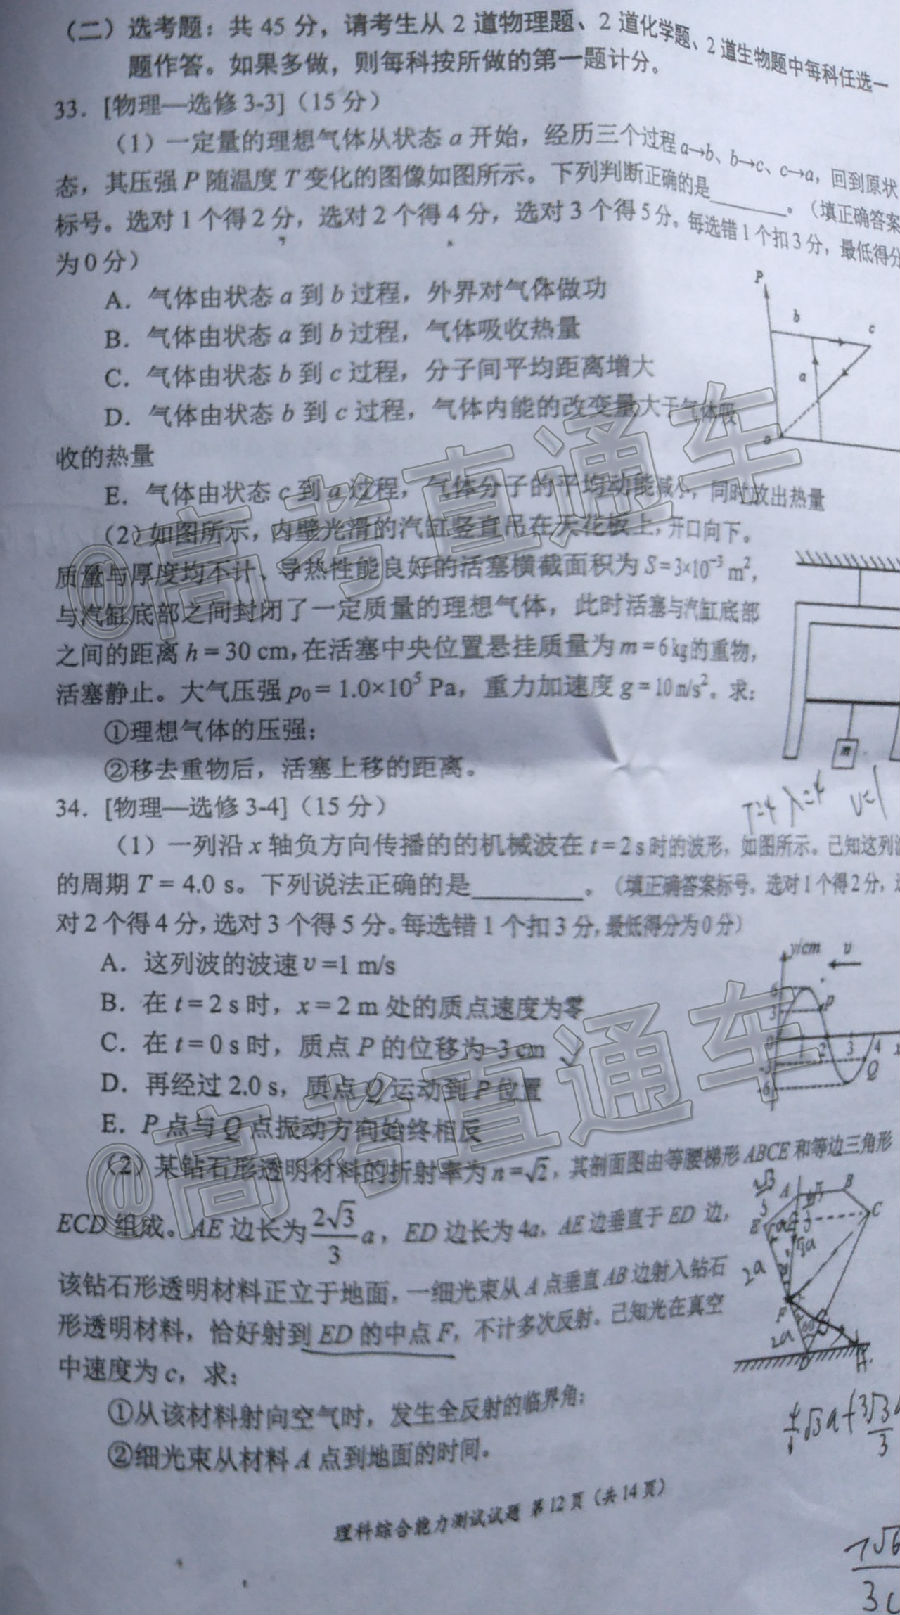 （二）选考题：共 45 分，请考生从 2 道物理题、2 道化学题、2 道生物题中每科任选一
题作答。如果多做，则每科按所做的第一题计分。
33．[物理—选修 3-3]（15 分）
（1）一定量的理想气体从状态 a 开始，经历三个过程 a→b、b→c、c→a，回到原状
态，其压强 P 随温度 T 变化的图像如图所示。下列判断正确的是______。（填正确答案
标号。选对 1 个得 2 分，选对 2 个得 4 分，选对 3 个得 5 分。每选错 1 个扣 3 分，最低得分
为 0 分）
A．气体由状态 a 到 b 过程，外界对气体做功
B．气体由状态 a 到 b 过程，气体吸收热量
C．气体由状态 b 到 c 过程，分子间平均距离增大
D．气体由状态 b 到 c 过程，气体内能的改变量大于气体吸
收的热量
E．气体由状态 c 到 a 过程，气体分子的平均动能减小，同时放出热量
P
b
c
a
o
（2）如图所示，内壁光滑的汽缸竖直吊在天花板上，开口向下。
质量与厚度均不计、导热性能良好的活塞横截面积为 S=3×10⁻³ m²，
与汽缸底部之间封闭了一定质量的理想气体，此时活塞与汽缸底部
之间的距离 h = 30 cm，在活塞中央位置悬挂质量为 m = 6 kg的重物，
活塞静止。大气压强 p₀ = 1.0×10⁵ Pa，重力加速度 g = 10 m/s²。求：
①理想气体的压强；
②移去重物后，活塞上移的距离。
34．[物理—选修 3-4]（15 分）
T=4 λ=4 v=1
（1）一列沿 x 轴负方向传播的的机械波在 t = 2 s 时的波形，如图所示。已知这列
的周期 T = 4.0 s。下列说法正确的是______。（填正确答案标号。选对 1 个得 2 分，选
对 2 个得 4 分，选对 3 个得 5 分。每选错 1 个扣 3 分，最低得分为 0 分）
A．这列波的波速 υ =1 m/s
B．在 t = 2 s 时，x = 2 m 处的质点速度为零
C．在 t = 0 s 时，质点 P 的位移为-3 cm
D．再经过 2.0 s，质点 Q 运动到 P 位置
E．P 点与 Q 点振动方向始终相反
y/cm
υ
P
1 2 3 4
Q
（2）某钻石形透明材料的折射率为 n = √2，其剖面图由等腰梯形 ABCE 和等边三角形
ECD 组成。AE 边长为 2√3/3 a，ED 边长为 4a，AE 边垂直于 ED 边，
该钻石形透明材料正立于地面，一细光束从 A 点垂直 AB 边射入钻石
形透明材料，恰好射到 ED 的中点 F，不计多次反射。已知光在真空
中速度为 c，求：
①从该材料射向空气时，发生全反射的临界角；
②细光束从材料 A 点到地面的时间。
A
B
C
E
F
D
2a
2a
理科综合能力测试试题 第 12 页（共 14 页）
@高考直通车
@高考直通车